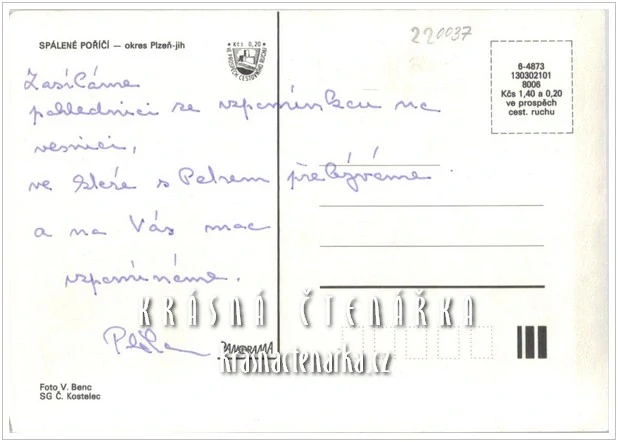 SPÁLENÉ POŘÍČÍ — okres Plzeň-jih
Kčs 0,20
VE PROSPĚCH CESTOVNÍHO RUCHU
220037
6-4873
130302101
8006
Kčs 1,40 a 0,20
ve prospěch
cest. ruchu
Zasíláme
pohlednici se vzpomínkou na
vesnici,
ve které s Petrem přebýváme
a na Vás moc
vzpomínáme.
KRÁSNÁ ČTENÁŘKA
PANORAMA
krasnactenarka.cz
Foto V. Benc
SG Č. Kostelec